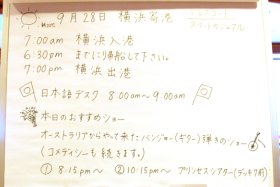 9月28日 横浜寄港
7:00am 横浜入港
6:30pm までに帰船して下さい。
7:00pm 横浜出港
日本語デスク 8:00am〜9:00am
本日のおすすめショー
オーストラリアからやって来たバンジョー(ギター)弾きのショー
(コメディシーも続きます。)
① 8:15pm〜 ② 10:15pm〜 プリンセスシアター(デッキ7前)